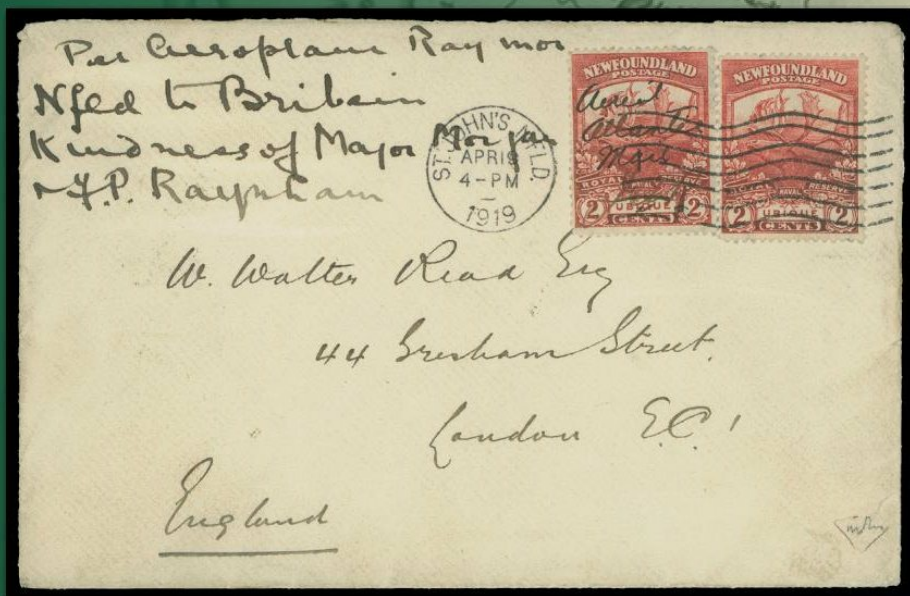 Per Aeroplane Raymor
Nfld to Britain
Kindness of Major Morgan
& F.P. Raynham
ST. JOHN'S, NFLD.
APR 19
4-PM
1919
NEWFOUNDLAND
POSTAGE
Aerial
Atlantic
Mail
ROYAL
2 UBIQUE 2
CENTS
NEWFOUNDLAND
POSTAGE
ROYAL NAVAL RESERVE
2 UBIQUE 2
CENTS
W. Walter Read Esq
44 Gresham Street.
London E.C.1
England